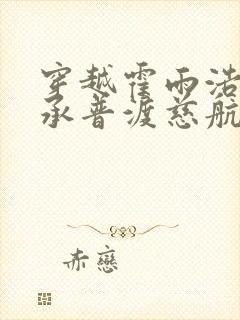 穿越霍雨浩
承普渡慈航
赤戀